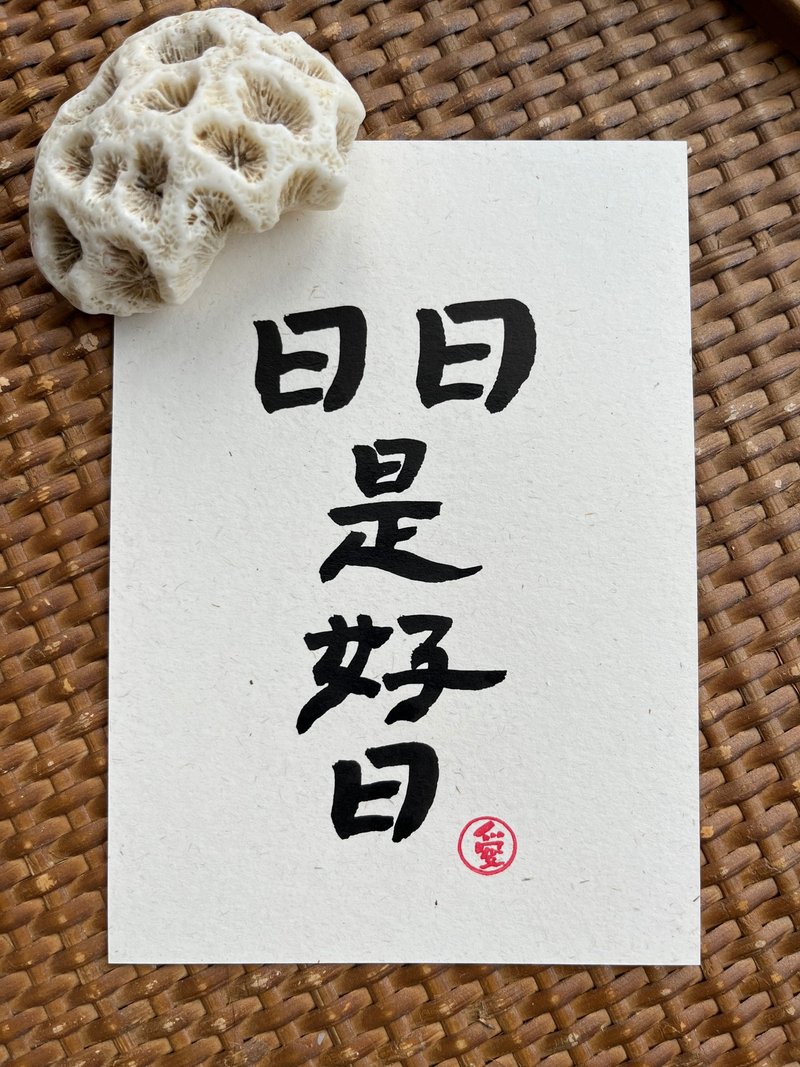 日日
是
好
日
愛